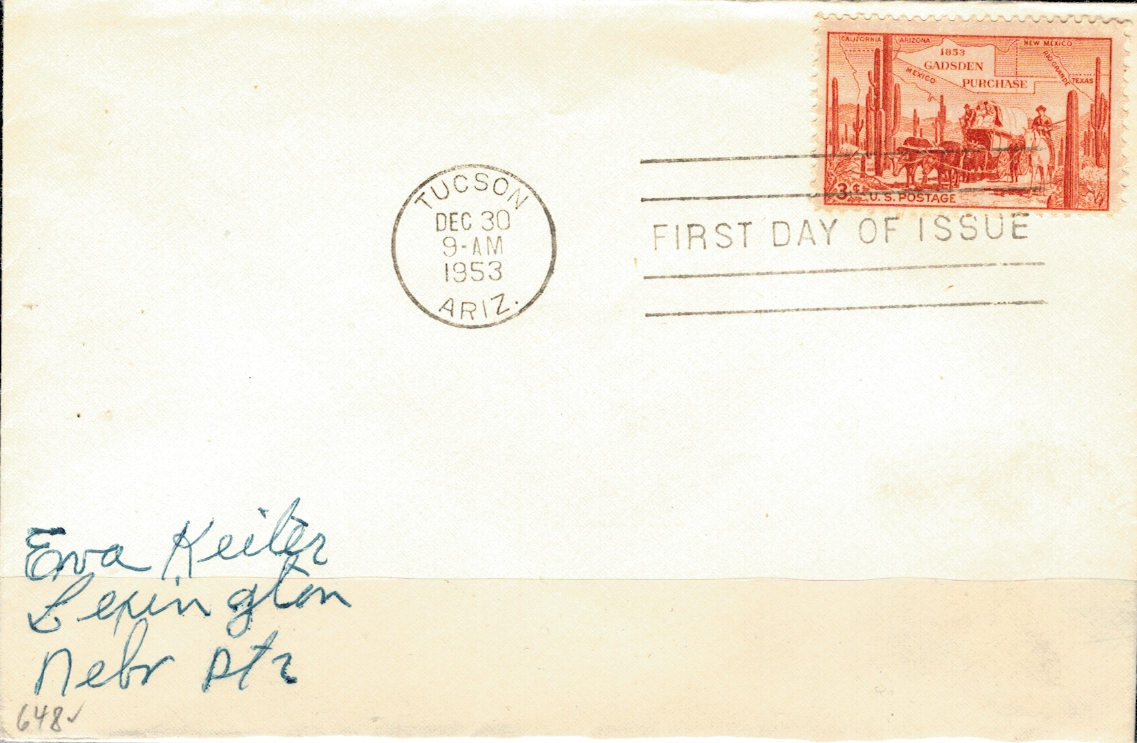 CALIFORNIA ARIZONA NEW MEXICO
1853
GADSDEN
PURCHASE
MEXICO
RIO GRANDE
TEXAS
3¢ U.S. POSTAGE
TUCSON
DEC 30
9-AM
1953
ARIZ.
FIRST DAY OF ISSUE
Eva Keiter
Lexington
Nebr Rt 2
648✓